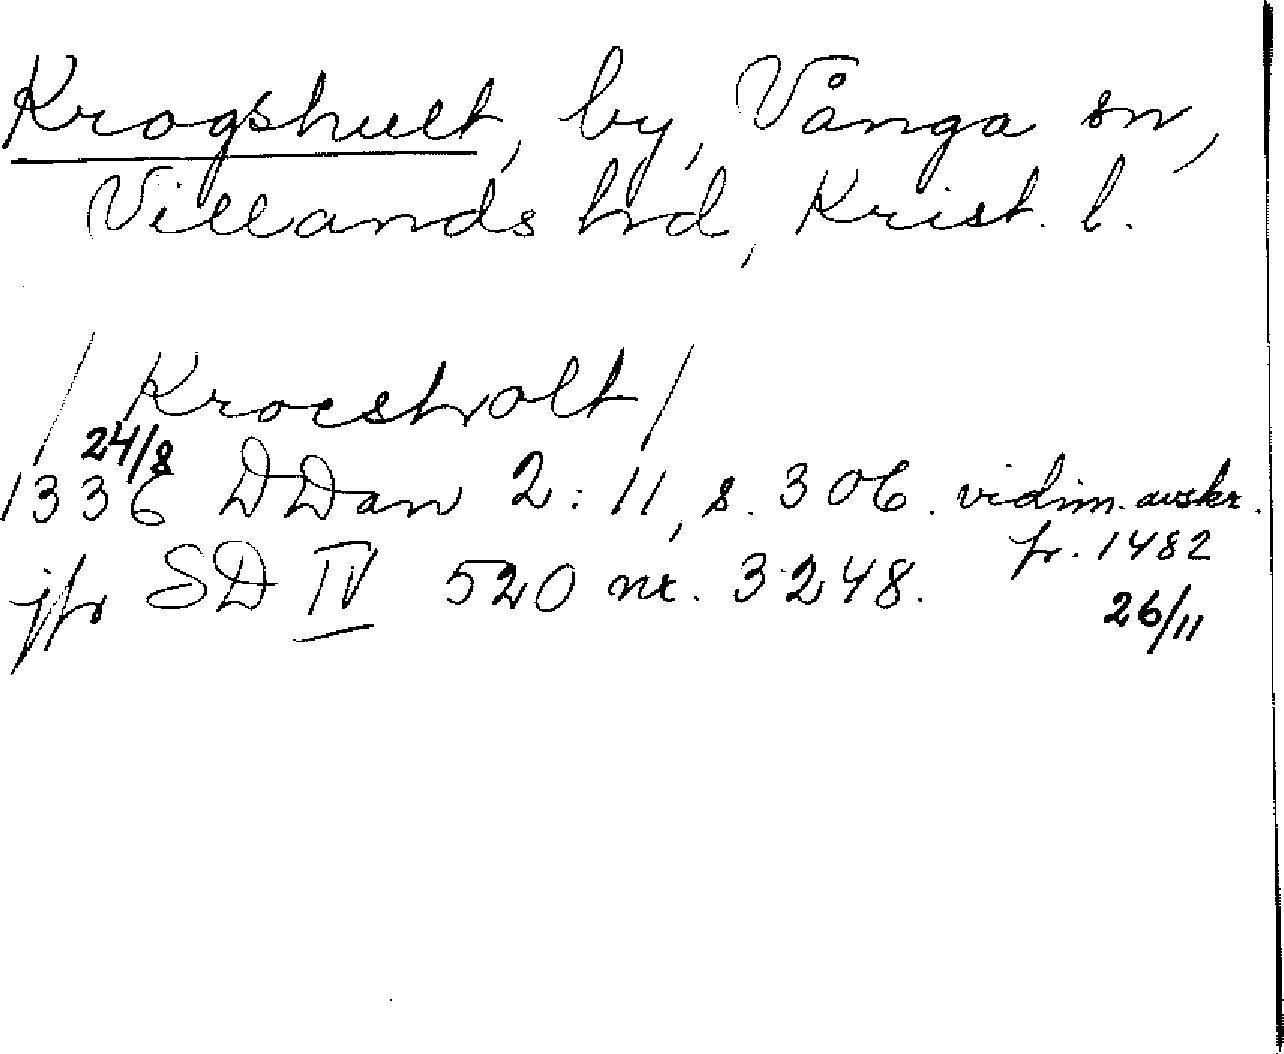 Krogshult, by, Vånga sn,
Villands hd, Krist. l.
/Krocsholt/
24/8
1336 DDan 2:11, s. 306. vidim. avskr.
fr. 1482
jfr SD IV 520 nr. 3248.
26/11